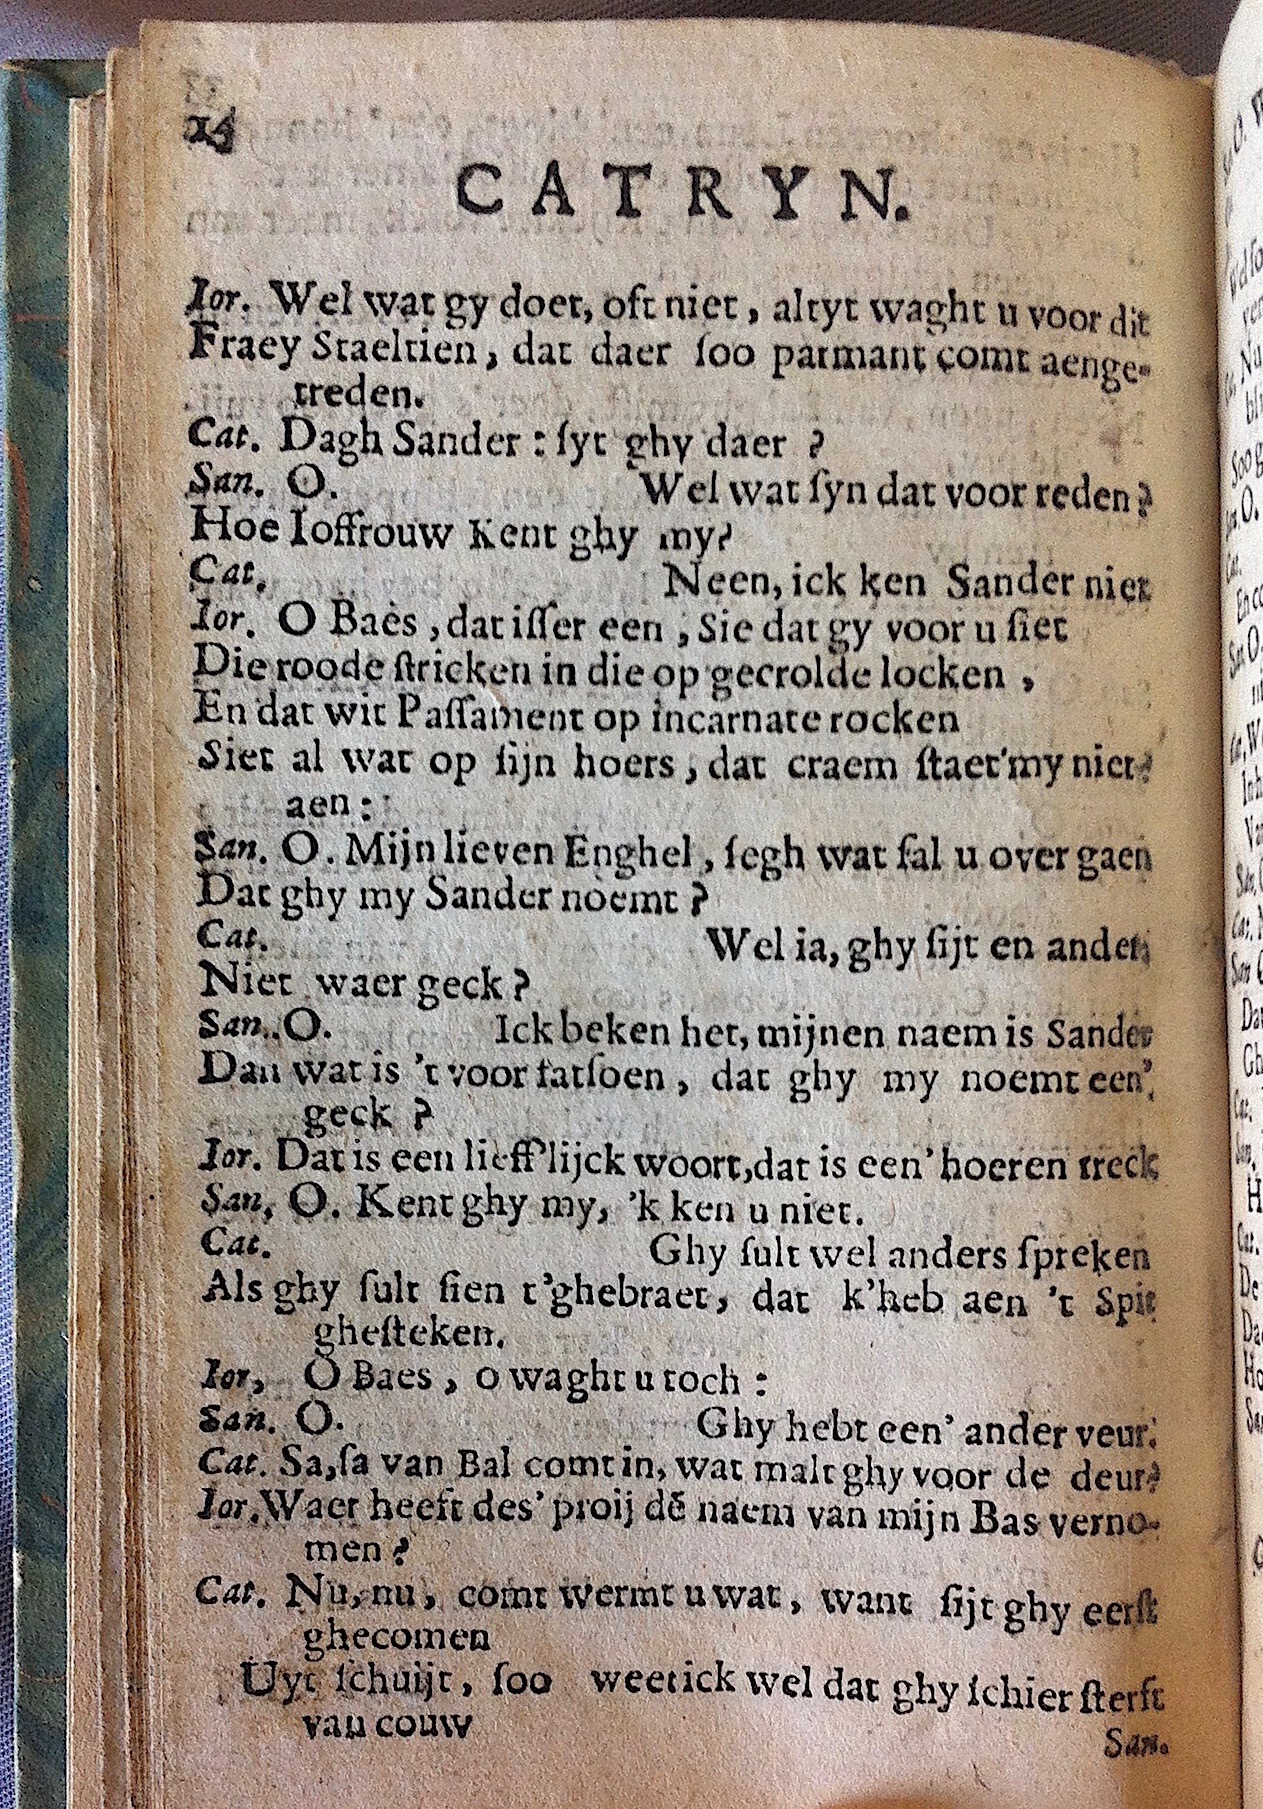 C A T R Y N.
Ior. Wel wat gy doet, oft niet, altyt waght u voor dit
Fraey Staeltien, dat daer soo parmant comt aenge-
treden.
Cat. Dagh Sander: syt ghy daer ?
San. O. Wel wat syn dat voor reden?
Hoe Ioffrouw Kent ghy my?
Cat. Neen, ick ken Sander niet
Ior. O Baes, dat isser een, Sie dat gy voor u siet
Die roode stricken in die op gecrolde locken,
En dat wit Passament op incarnate rocken
Siet al wat op sijn hoers, dat craem staet my niet
aen:
San. O. Mijn lieven Enghel, segh wat sal u over gaen
Dat ghy my Sander noemt ?
Cat. Wel ia, ghy sijt en ander,
Niet waer geck ?
San. O. Ick beken het, mijnen naem is Sander
Dan wat is 't voor fatsoen, dat ghy my noemt een'
geck ?
Ior. Dat is een lieff'lijck woort, dat is een' hoeren treck
San, O. Kent ghy my, 'k ken u niet.
Cat. Ghy sult wel anders spreken
Als ghy sult sien t'ghebraet, dat k'heb aen 't Spit
ghesteken.
Ior, O Baes, o waght u toch :
San. O. Ghy hebt een' ander veur.
Cat. Sa, sa van Bal comt in, wat malt ghy voor de deur?
Ior. Waer heeft des' proij dē naem van mijn Bas verno-
men?
Cat. Nu, nu, comt wermt u wat, want sijt ghy eerst
ghecomen
Uyt schuijt, soo weet ick wel dat ghy schier sterft
van couw
San.